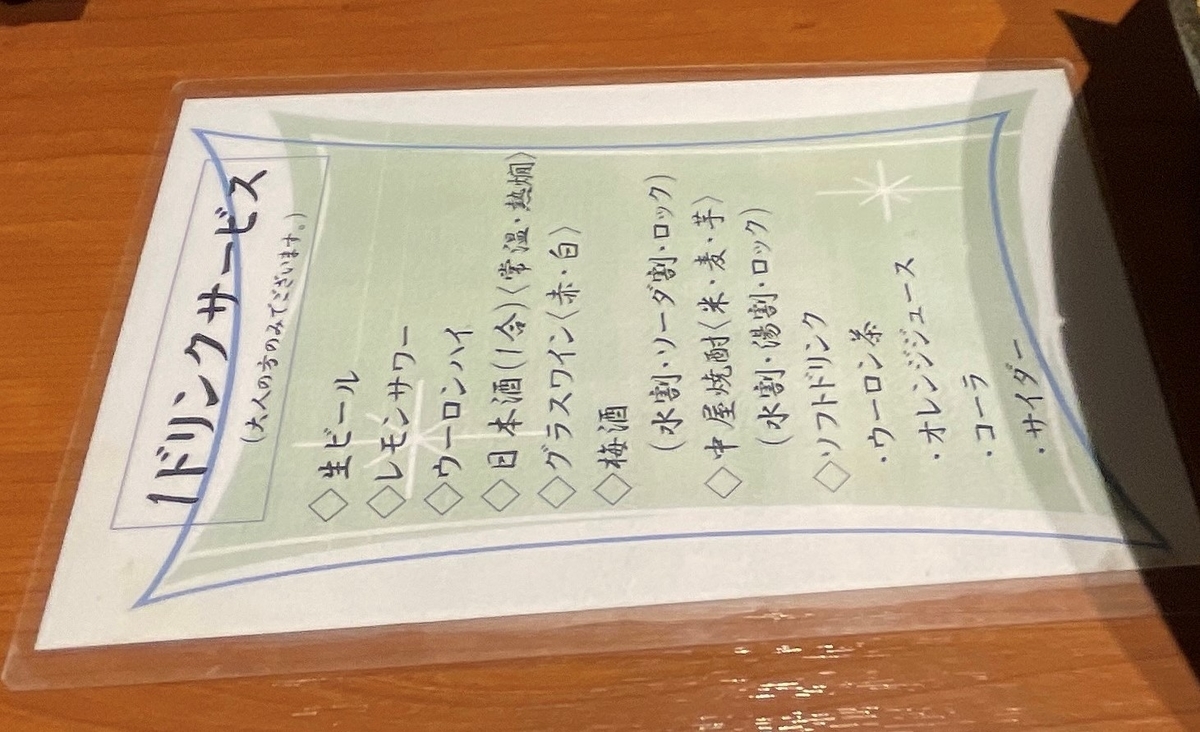 1ドリンクサービス
(大人の方のみでございます。)
◇生ビール
◇レモンサワー
◇ウーロンハイ
◇日本酒(1合)〈常温・熱燗〉
◇グラスワイン〈赤・白〉
◇梅酒
(水割・ソーダ割・ロック)
◇中屋焼酎〈米・麦・芋〉
(水割・湯割・ロック)
◇ソフトドリンク
・ウーロン茶
・オレンジジュース
・コーラ
・サイダー